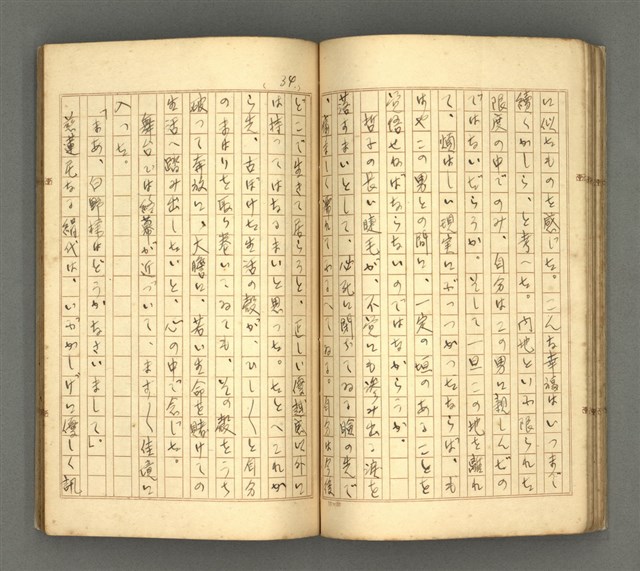 に似たものを感じた。こんな幸福はいつまで
続くかしら、と考へた。内地といふ限られた
限度の中でのみ、自分はこの男に親しんだの
ではないだらうか。そして一旦この地を離れ
て、煩はしい現実にぶつつかつたならば、も
はやこの男との間に、一定の垣のあることを
覚悟せねばならないのではなからうか。
哲子の長い睫毛が、不覚にも滲み出る涙を
落すまいとして、必死に開かてゐる瞼の先で
34
どこで生きて居らうと、正しい優越感以外に
は持つてはなるまいと思つた。たとへこれか
ら先、古ぼけた生活の殻が、ひし〱と自分
のまはりを取り巻いてゐても、その殻をうち
破つて奔放に、大膽に、若い生命を賭けての
生活へ踏み出したいと、心の中で念じた。
舞台では終幕が近づいて、ます〱佳境に
入つた。
「まあ、白野様はどうかなさいまして」
慈蓮尼なる絹代は、いぶかしげに優しく訊